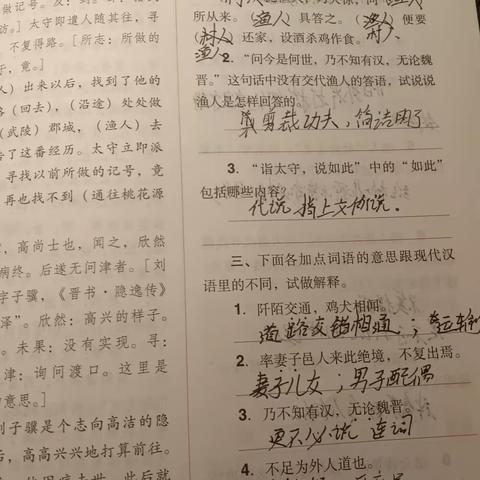 做记号。
访。］太守即遣人随其往，寻
不复得路。［所志：所做的
，竟。］
人）出来以后，找到了他的
（回去），（沿途）处处做
（武陵）郡城，（渔人）去
告了这番经历。太守立即派
寻找以前所做的记号，竟
再也找不到（通往桃花源
，高尚士也，闻之，欣然
病终。后遂无问津者。［刘
字子骥，《晋书·隐逸传》
泽”。欣然：高兴的样子。
。未果：没有实现。寻：
津：询问渡口。这里是
的意思。］
刘子骥是个志向高洁的隐
后，高高兴兴地打算前往。
所从来。（渔人）具答之。（渔人）便要
（村人）还家，设酒杀鸡作食。 村人
渔人
2. “问今是何世，乃不知有汉，无论魏
晋。”这句话中没有交代渔人的答语，试说说
渔人是怎样回答的。
剪裁功夫，简洁明了
3. “诣太守，说如此”中的“如此”
包括哪些内容？
代说，指上文所说。
三、下面各加点词语的意思跟现代汉
语里的不同，试做解释。
1. 阡陌交通，鸡犬相闻。
道路交错相通；
2. 率妻子邑人来此绝境，不复出焉。
妻子儿女；男子配偶
3. 乃不知有汉，无论魏晋。
更不必说 连词
4. 不足为外人道也。